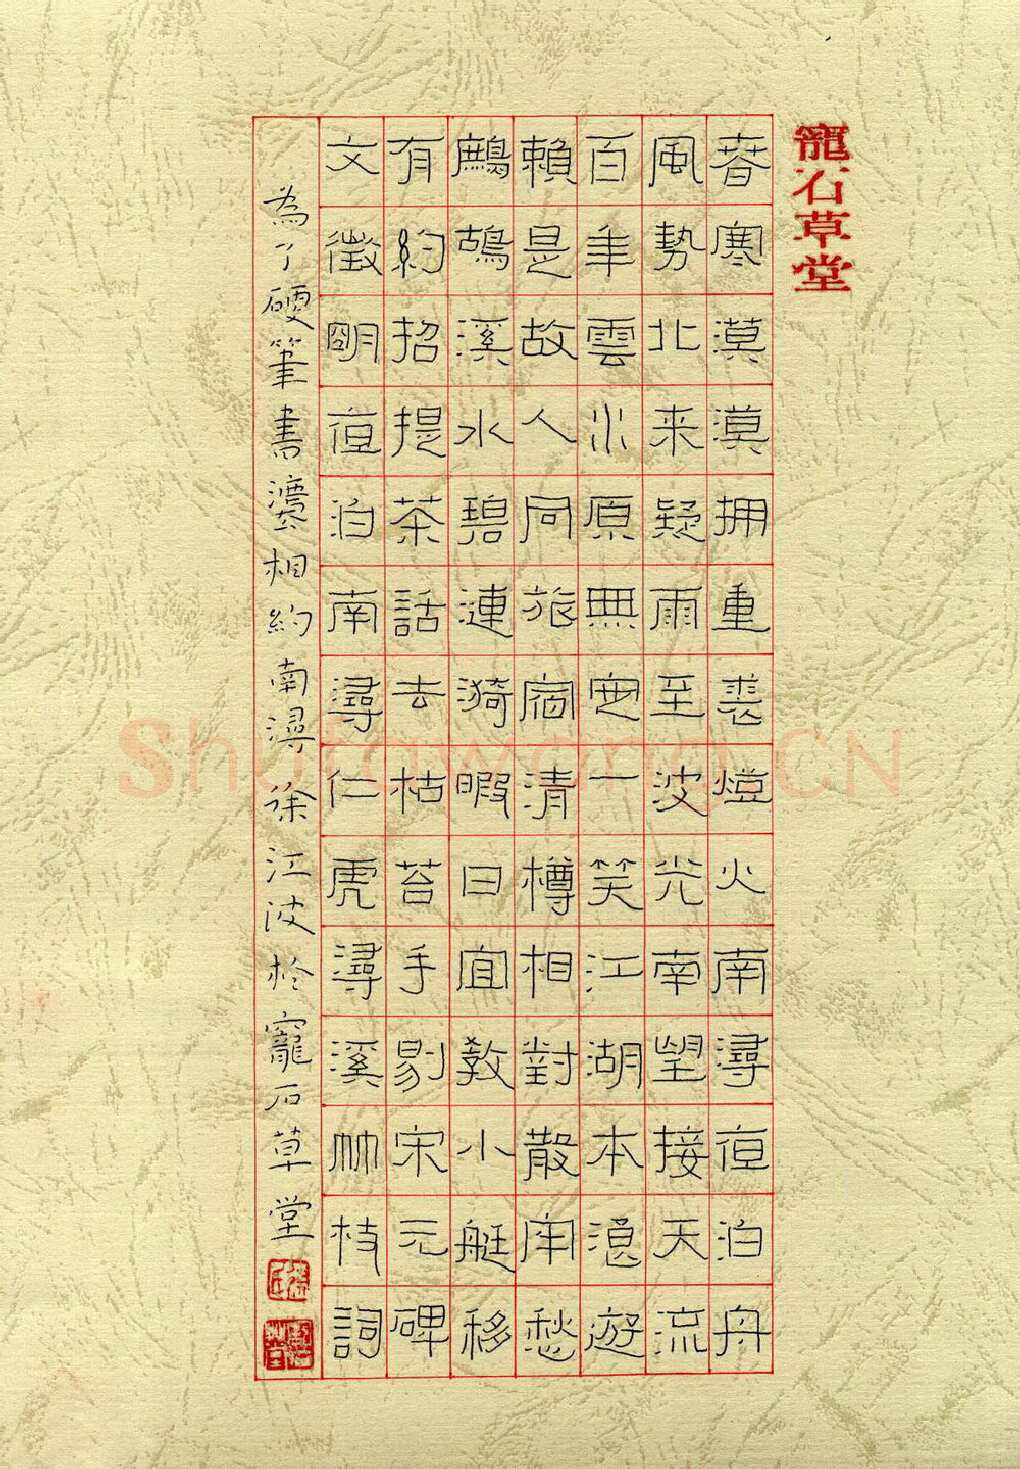 寵石草堂
春寒漠漠拥重裘燈火南潯夜泊舟
風勢北来疑雨至波光南望接天流
百年雲水原無定一笑江湖本浪遊
賴是故人同旅宿清樽相對散牢愁
鷓鴣溪水碧漣漪暇日宜教小艇移
有約招提茶話去枯苔手剔宋元碑
文徵明夜泊南潯仁虎潯溪竹枝詞
為了硬筆書灋相約南潯徐江波於寵石草堂
Shufawang.CN